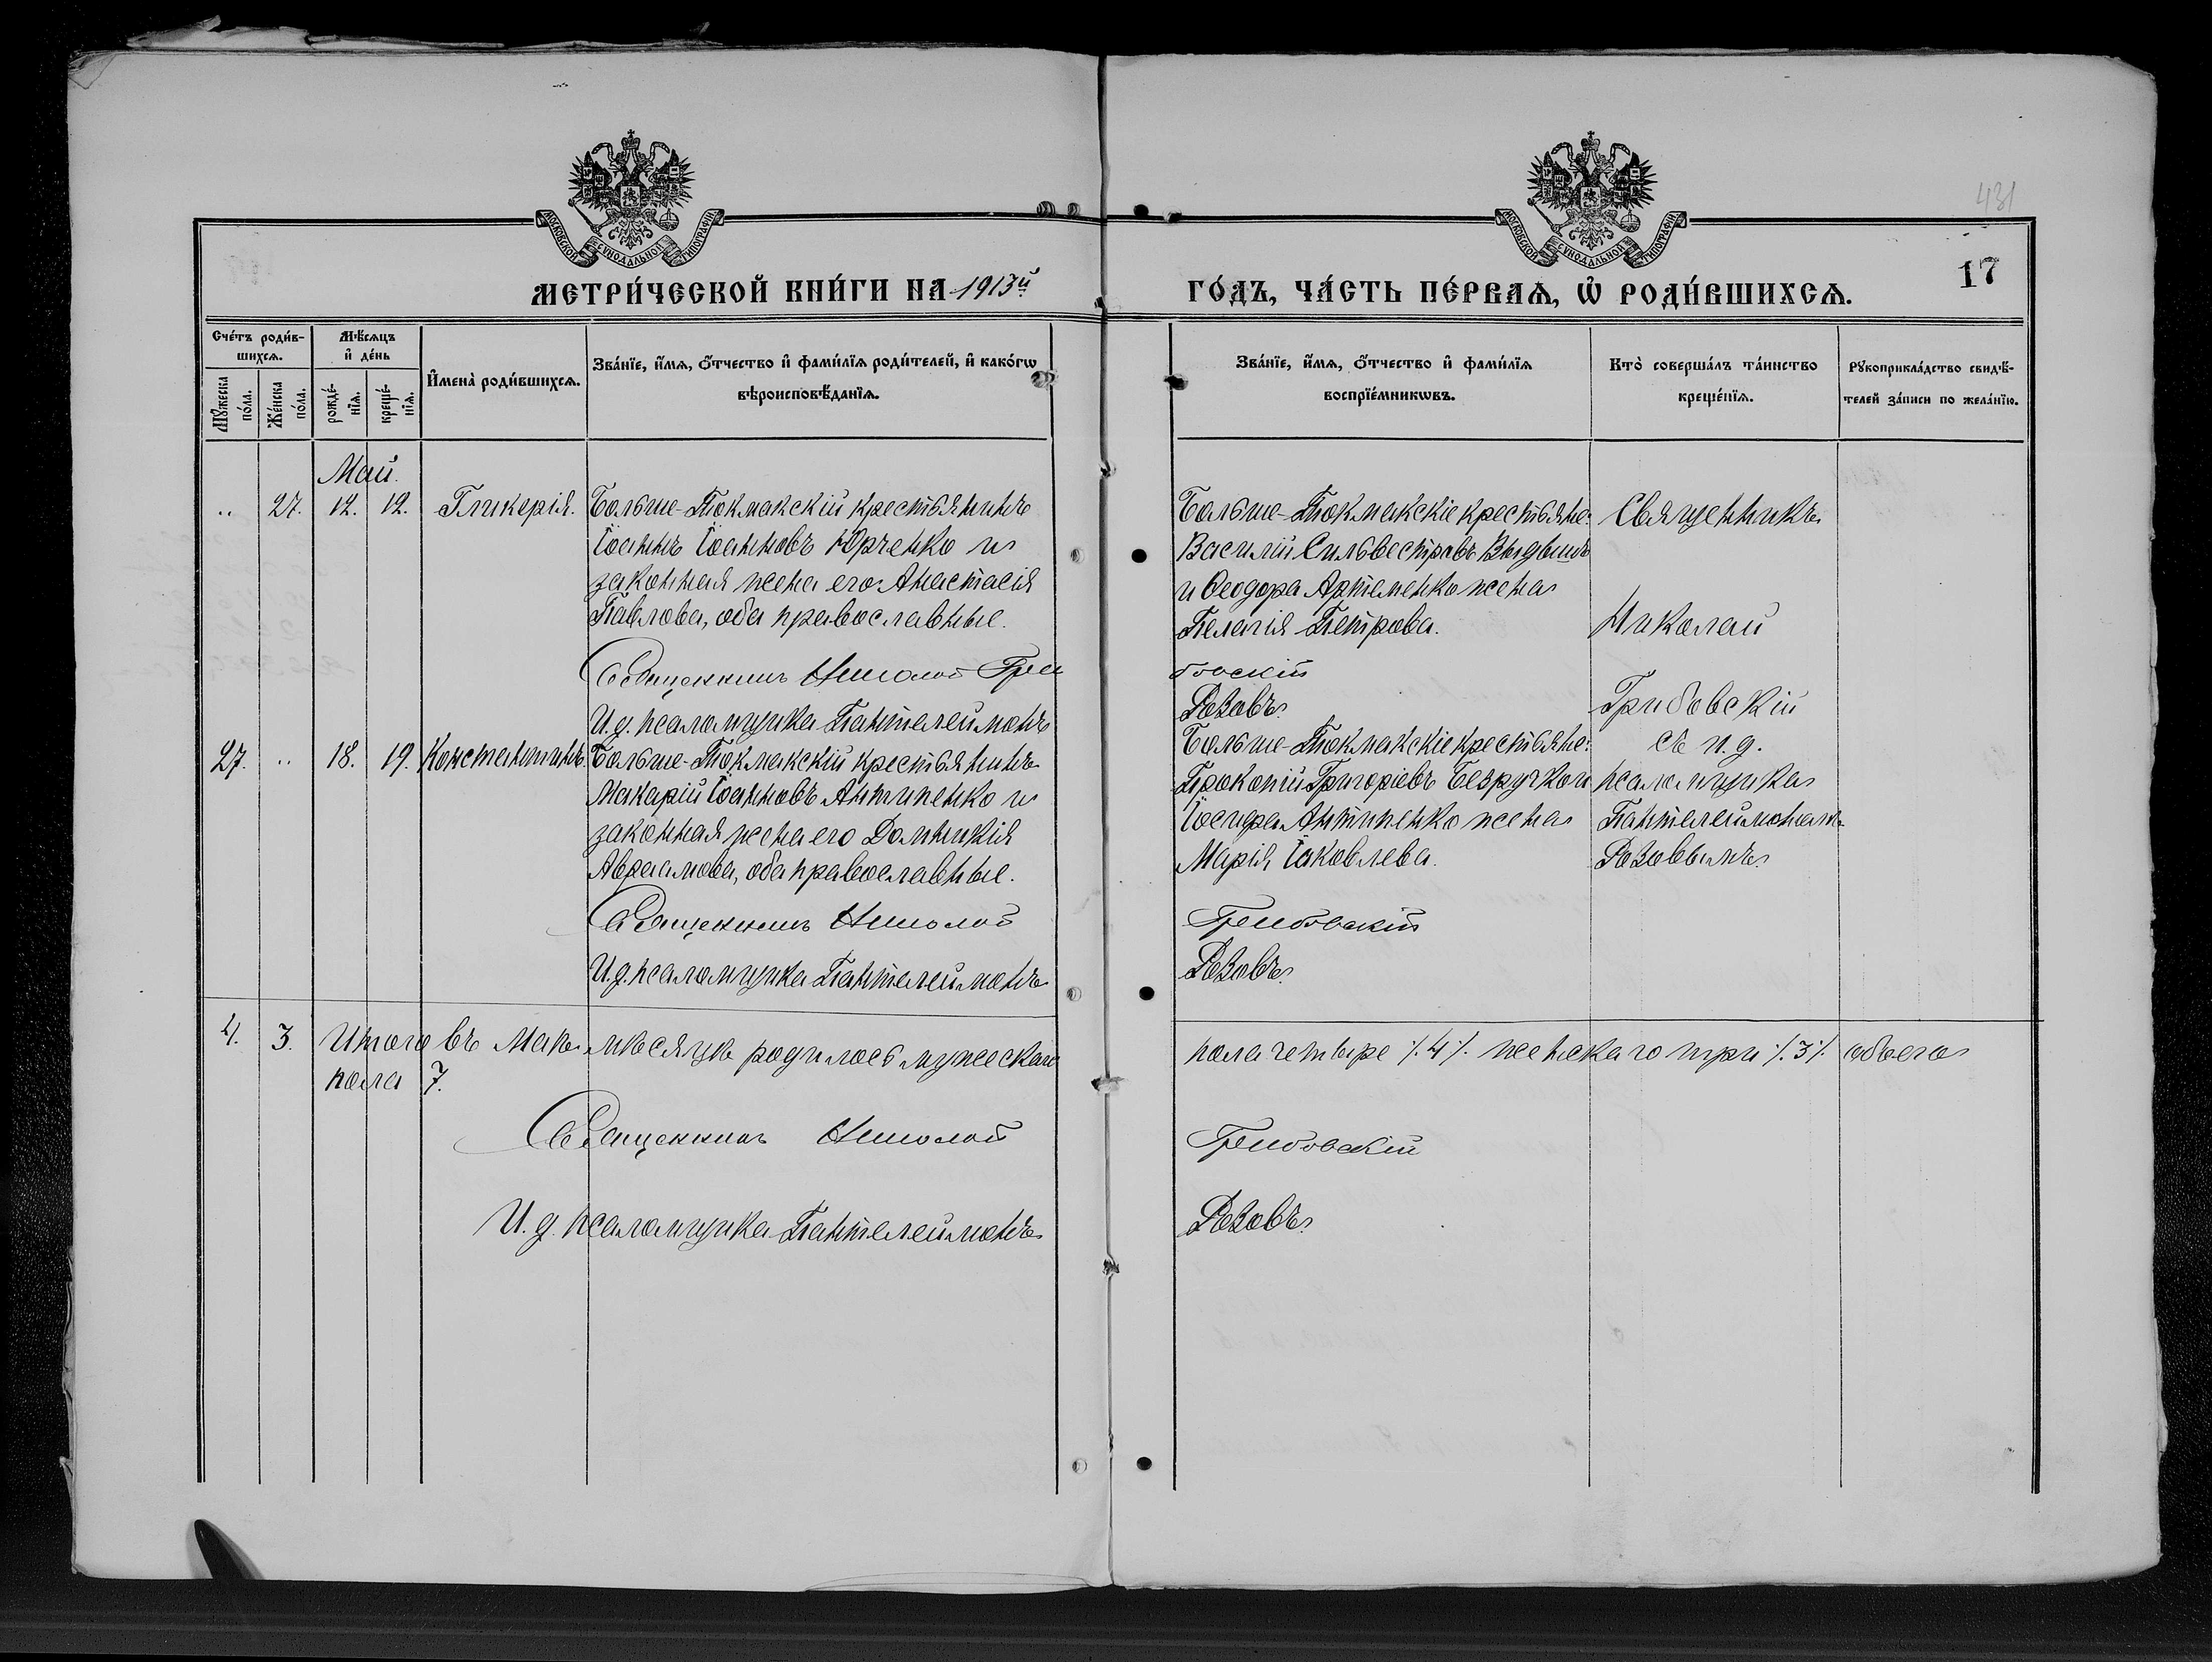 431
МОСКОВСКОЙ СѴНОДАЛЬНОЙ ТИПОГРАФІИ
МОСКОВСКОЙ СѴНОДАЛЬНОЙ ТИПОГРАФІИ
МЕТРИ́ЧЕСКОЙ КНИ́ГИ НА 1913й
ГО́ДЪ, ЧА́СТЬ ПЕ́РВАѦ, Ѡ҆ РОДИ́ВШИХСѦ.
17
Сче́тъ роди́в-
шихсѧ.
Мꙋ́жеска
по́ла.
Же́нска
по́ла.
Мѣ́сѧцъ
и҆ де́нь
рожде́-
нїѧ.
креще́-
нїѧ.
И҆мена̀ роди́вшихсѧ.
Зва́нїе, и҆́мѧ, ѻ҆́тчество и҆ фами́лїѧ роди́телей, и҆ како́гѡ
вѣроисповѣ́данїѧ.
Зва́нїе, и҆́мѧ, ѻ҆́тчество и҆ фами́лїѧ
воспрїе́мникѡвъ.
Кто̀ соверша́лъ та́инство
креще́нїѧ.
Рꙋкоприкла́дство свидѣ́-
телей за́писи по жела́нїю.
Май.
.. 27. 12. 12. Гликерія. Больше-Токмакскій крестьянинъ
Іоаннъ Іоанновъ Юрченко и
законная жена его Анастасія
Павлова, оба православные.
Священникъ Николай Гри
И.д. псаломщика Пантелеймонъ
Больше-Токмакскіе крестьяне:
Василій Сильвестровъ
и Ѳеодора Артеменко жена
Пелагія Петрова.
бовскій
Розовъ.
Священникъ
Николай
Грибовскій
съ и.д.
псаломщика
Пантелеймономъ
Розовымъ.
27. .. 18. 19. Константинъ. Больше-Токмакскій крестьянинъ
Макарій Іоанновъ Антипенко и
законная жена его Домникія
Авраамова, оба православные.
Священникъ Николай
И.д. псаломщика Пантелеймонъ
Больше-Токмакскіе крестьяне:
Прокопій Григоріевъ Безручко и
Іосифа Антипенко жена
Марія Іаковлева.
Грибовскій
Розовъ.
4. 3. Итого въ Маѣ мѣсяцѣ родилось мужескаго пола четыре /.4/. женскаго три /.3/. обоего
пола 7.
Священникъ Николай Грибовскій
И.д. псаломщика Пантелеймонъ Розовъ.